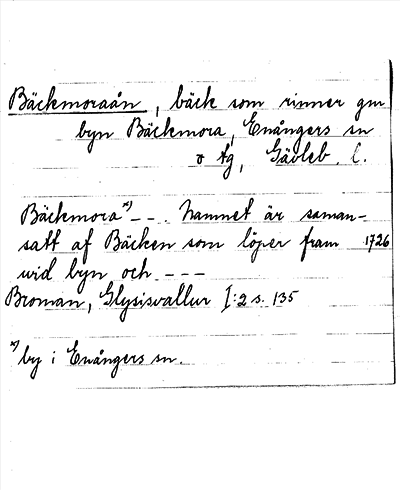 Bäckmoraån, bäck som rinner gm
byn Bäckmora, Enångers sn
o tg, Gävleb. l.
Bäckmora*) - - . Namnet är saman-
satt af Bäcken som löper fram 1726
wid byn och - - -
Broman, Glysisvallur I:2 s. 135
*) by i Enångers sn.